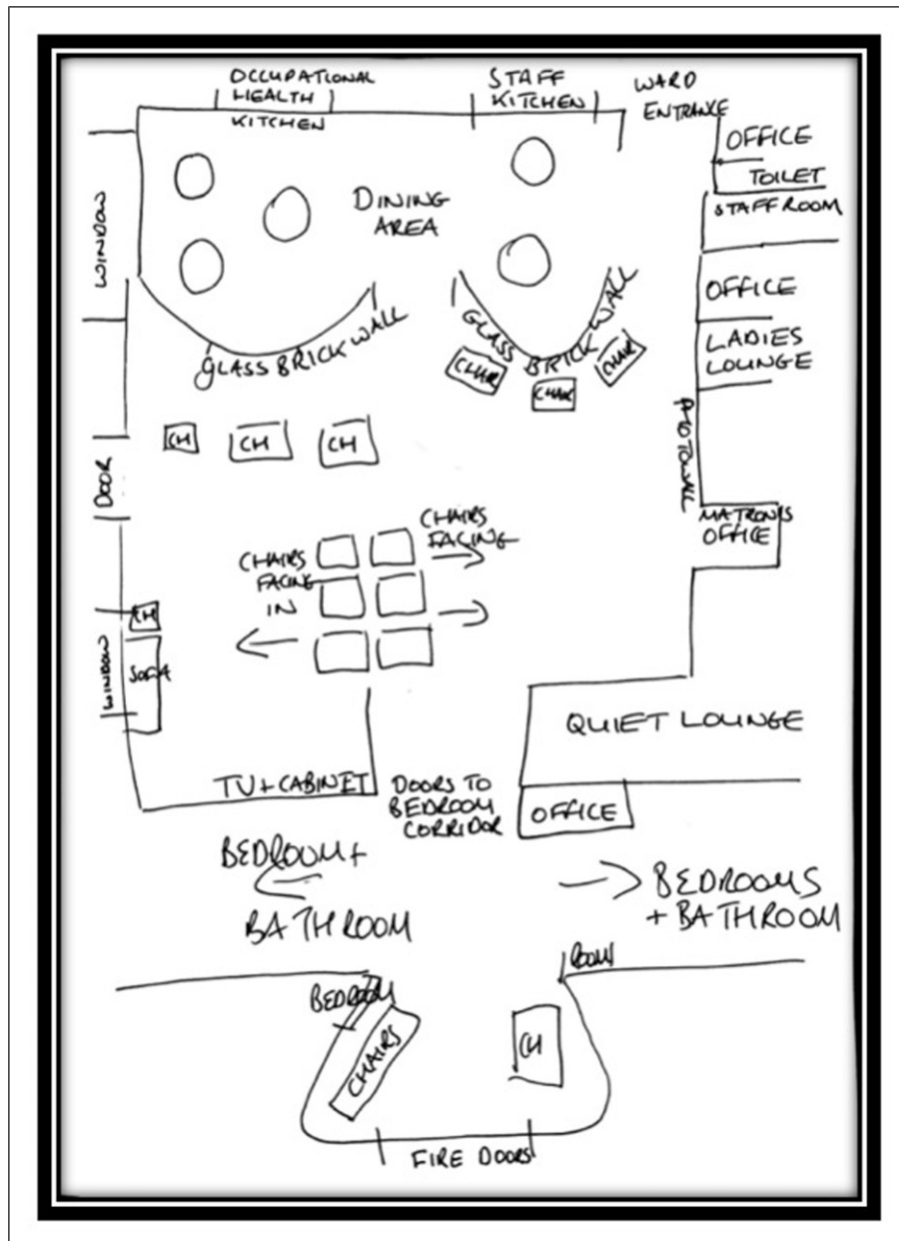 OCCUPATIONAL
HEALTH
KITCHEN
STAFF
KITCHEN
WARD
ENTRANCE
OFFICE
TOILET
STAFF ROOM
WINDOW
DINING
AREA
OFFICE
GLASS BRICK WALL
GLASS BRICK WALL
LADIES
LOUNGE
CHAIR
CHAIR
CHAIR
PHOTOWALL
CH
CH
CH
DOOR
MATRON'S
OFFICE
CHAIRS
FACING
CHAIRS
FACING
IN
CH
SOFA
WINDOW
QUIET LOUNGE
TV + CABINET
DOORS TO
BEDROOM
CORRIDOR
OFFICE
BEDROOM +
BATHROOM
BEDROOMS
+ BATHROOM
BEDROOM
ROOM
CHAIRS
CH
FIRE DOORS